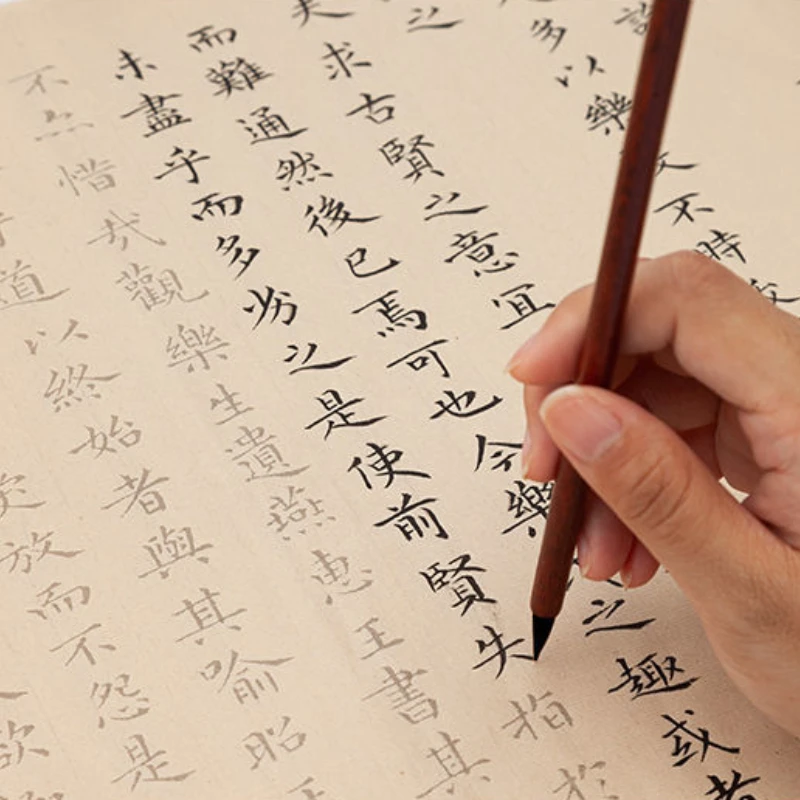 多以樂不時
之
夫求古賢之意宜
而難通然後已焉可也今樂之趣或者
未盡乎而多劣之是使前賢失指於
不亦惜哉觀樂生遺燕惠王書其
道以終始者與其喻昭
放而不怨是
欲